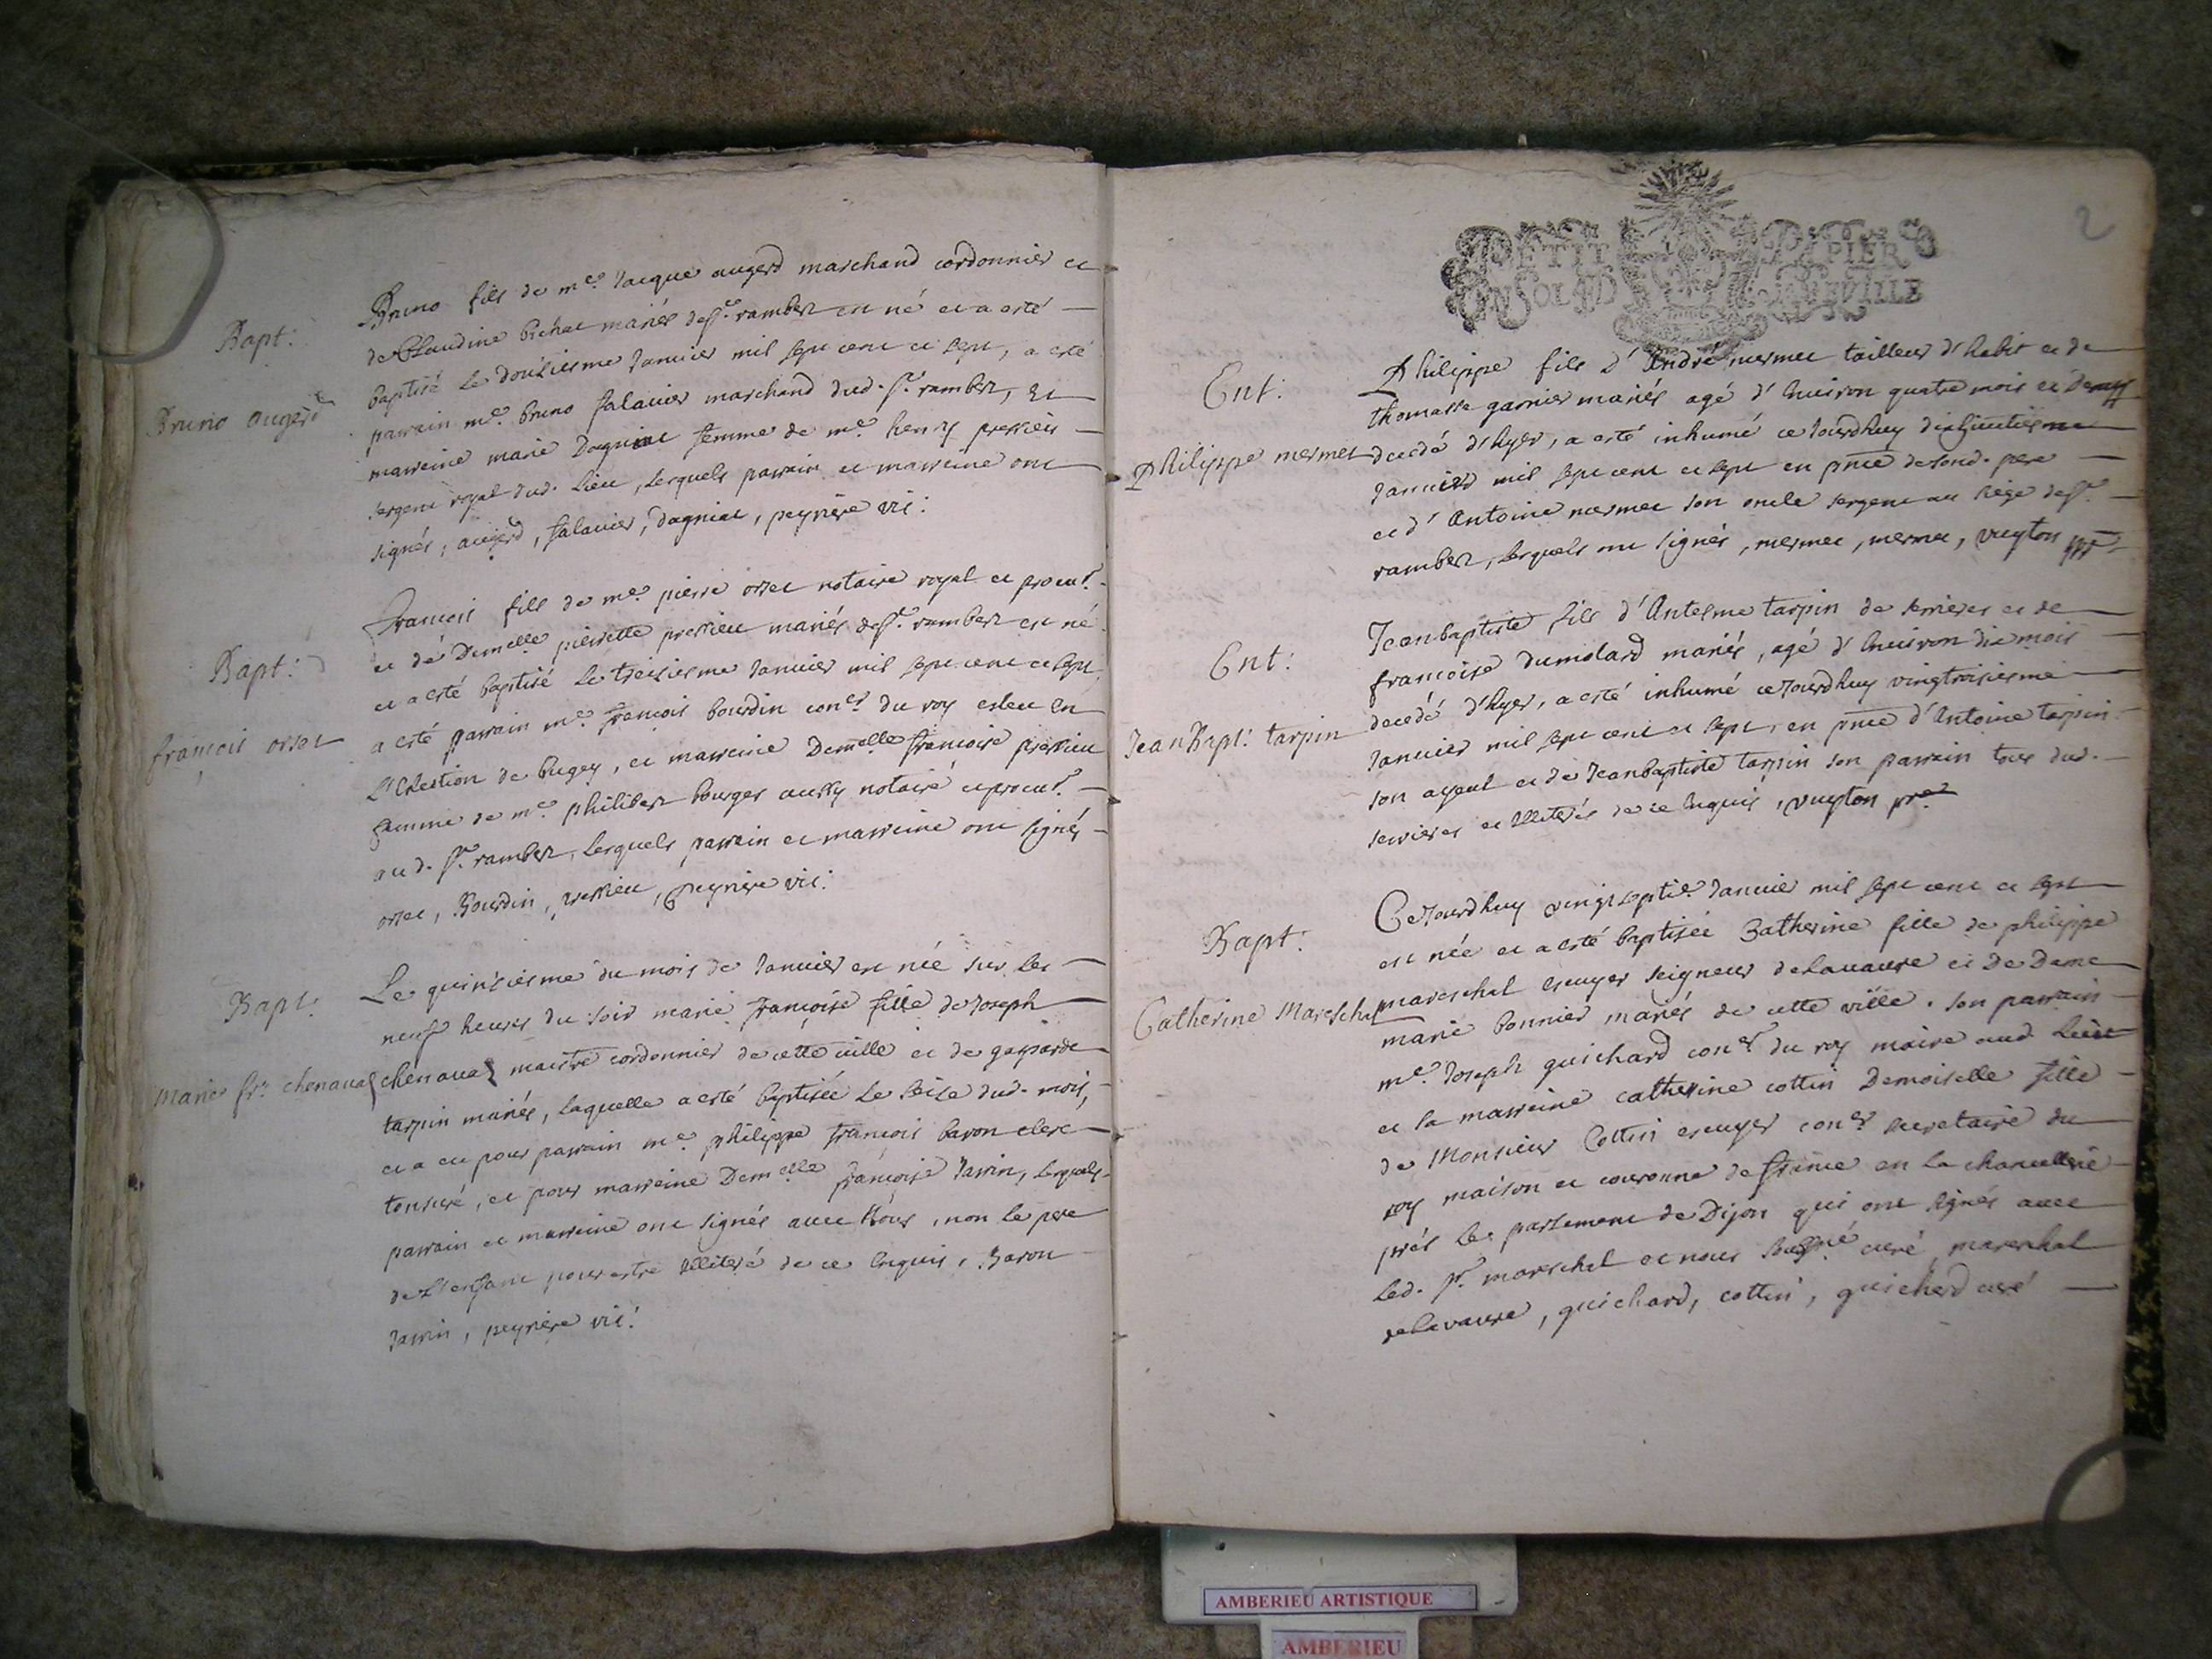 Bapt:
Bruno augerd
Bruno fils de me. Jacque augerd marchand cordonnier et
de Claudine bichat mariés de st. rambert est né et a esté
baptisé le dousiesme Janvier mil sept cent et sept, a esté
parrain me. bruno salavier marchand dud. st. rambert, et
marreine marie Dagniat femme de me. henry pressieu
sergent royal dud. lieu, lesquels parrain et marreine ont
signés, augerd, salavier, dagniat, peyriere vic:
Bapt:
françois orset
françois fils de me. pierre orset notaire royal et procur.
et de Demelle pierrette pressieu mariés de st. rambert est né
et a esté baptisé le treisiesme Janvier mil sept cent et sept,
a esté parrain me. françois bourdin coner du roy esleu en
l'Election de bugey, et marreine Demelle françoise pressieu
femme de me. philibert bourger aussy notaire et procur.
aud. st. rambert, lesquels parrain et marreine ont signés
orset, Bourdin, pressieu, peyriere vic:
Bapt:
Marie fr. chenavaz
Le quinsiesme du mois de Janvier est née sur les
neuf heures du soir marie françoise fille de Joseph
chenavaz maistre cordonnier de cette ville et de gasparde
tarpin mariés, laquelle a esté baptisée le seise dud. mois,
et a eu pour parrain me. philippe françois baron clerc
tonsuré, et pour marreine Demelle françoise Janin, lesquels
parrain et marreine ont signés avec Nous, non le pere
de l'enfant pour estre illiteré de ce enquis, Baron
Janin, peyriere vic:
2
PETIT PAPIER
UN SOL LA FEUILLE
Ent:
Philippe mermet
Philippe fils d'André mermet tailleur d'habit et de
thomasse garnier mariés agé d'environ quatre mois et demy
decedé d'hyer, a esté inhumé ce Jourdhuy dixhuitiesme
Janvier mil sept cent et sept en pnce de sond. pere
et d'Antoine mermet son oncle sergent au siège de st.
rambert, lesquels ont signés, mermet, mermet, vuyton
Ent:
Jean Bapt: tarpin
Jeanbaptiste fils d'Antesme tarpin de serrieres et de
françoise dumolard mariés, agé d'environ dix mois
decedé d'hyer, a esté inhumé ce Jourdhuy vingtroisiesme
Janvier mil sept cent et sept, en pnce d'Antoine tarpin
son ayeul et de Jeanbaptiste tarpin son parrain tous dud.
serrieres et illiterés de ce enquis, vuyton pre
Bapt:
Catherine Mareschal
Ce Jourdhuy vingtseptie. Janvie mil sept cent et sept
est née et a esté baptisée Catherine fille de philippe
mareschal escuyer seigneur delavaure et de Dame
marie bonnier mariés de cette ville. son parrain
me. Joseph guichard coner du roy maire aud. lieu
et la marreine catherine cottin Demoiselle fille
de Monsieur Cottin escuyer coner secretaire du
roy maison et couronne de france en la chancellerie
près le parlement de Dijon qui ont signés avec
led. sr. mareschal et nous soussné curé mareschal
delavaure, guichard, cottin, guicherd curé
AMBERIEU ARTISTIQUE
AMBERIEU